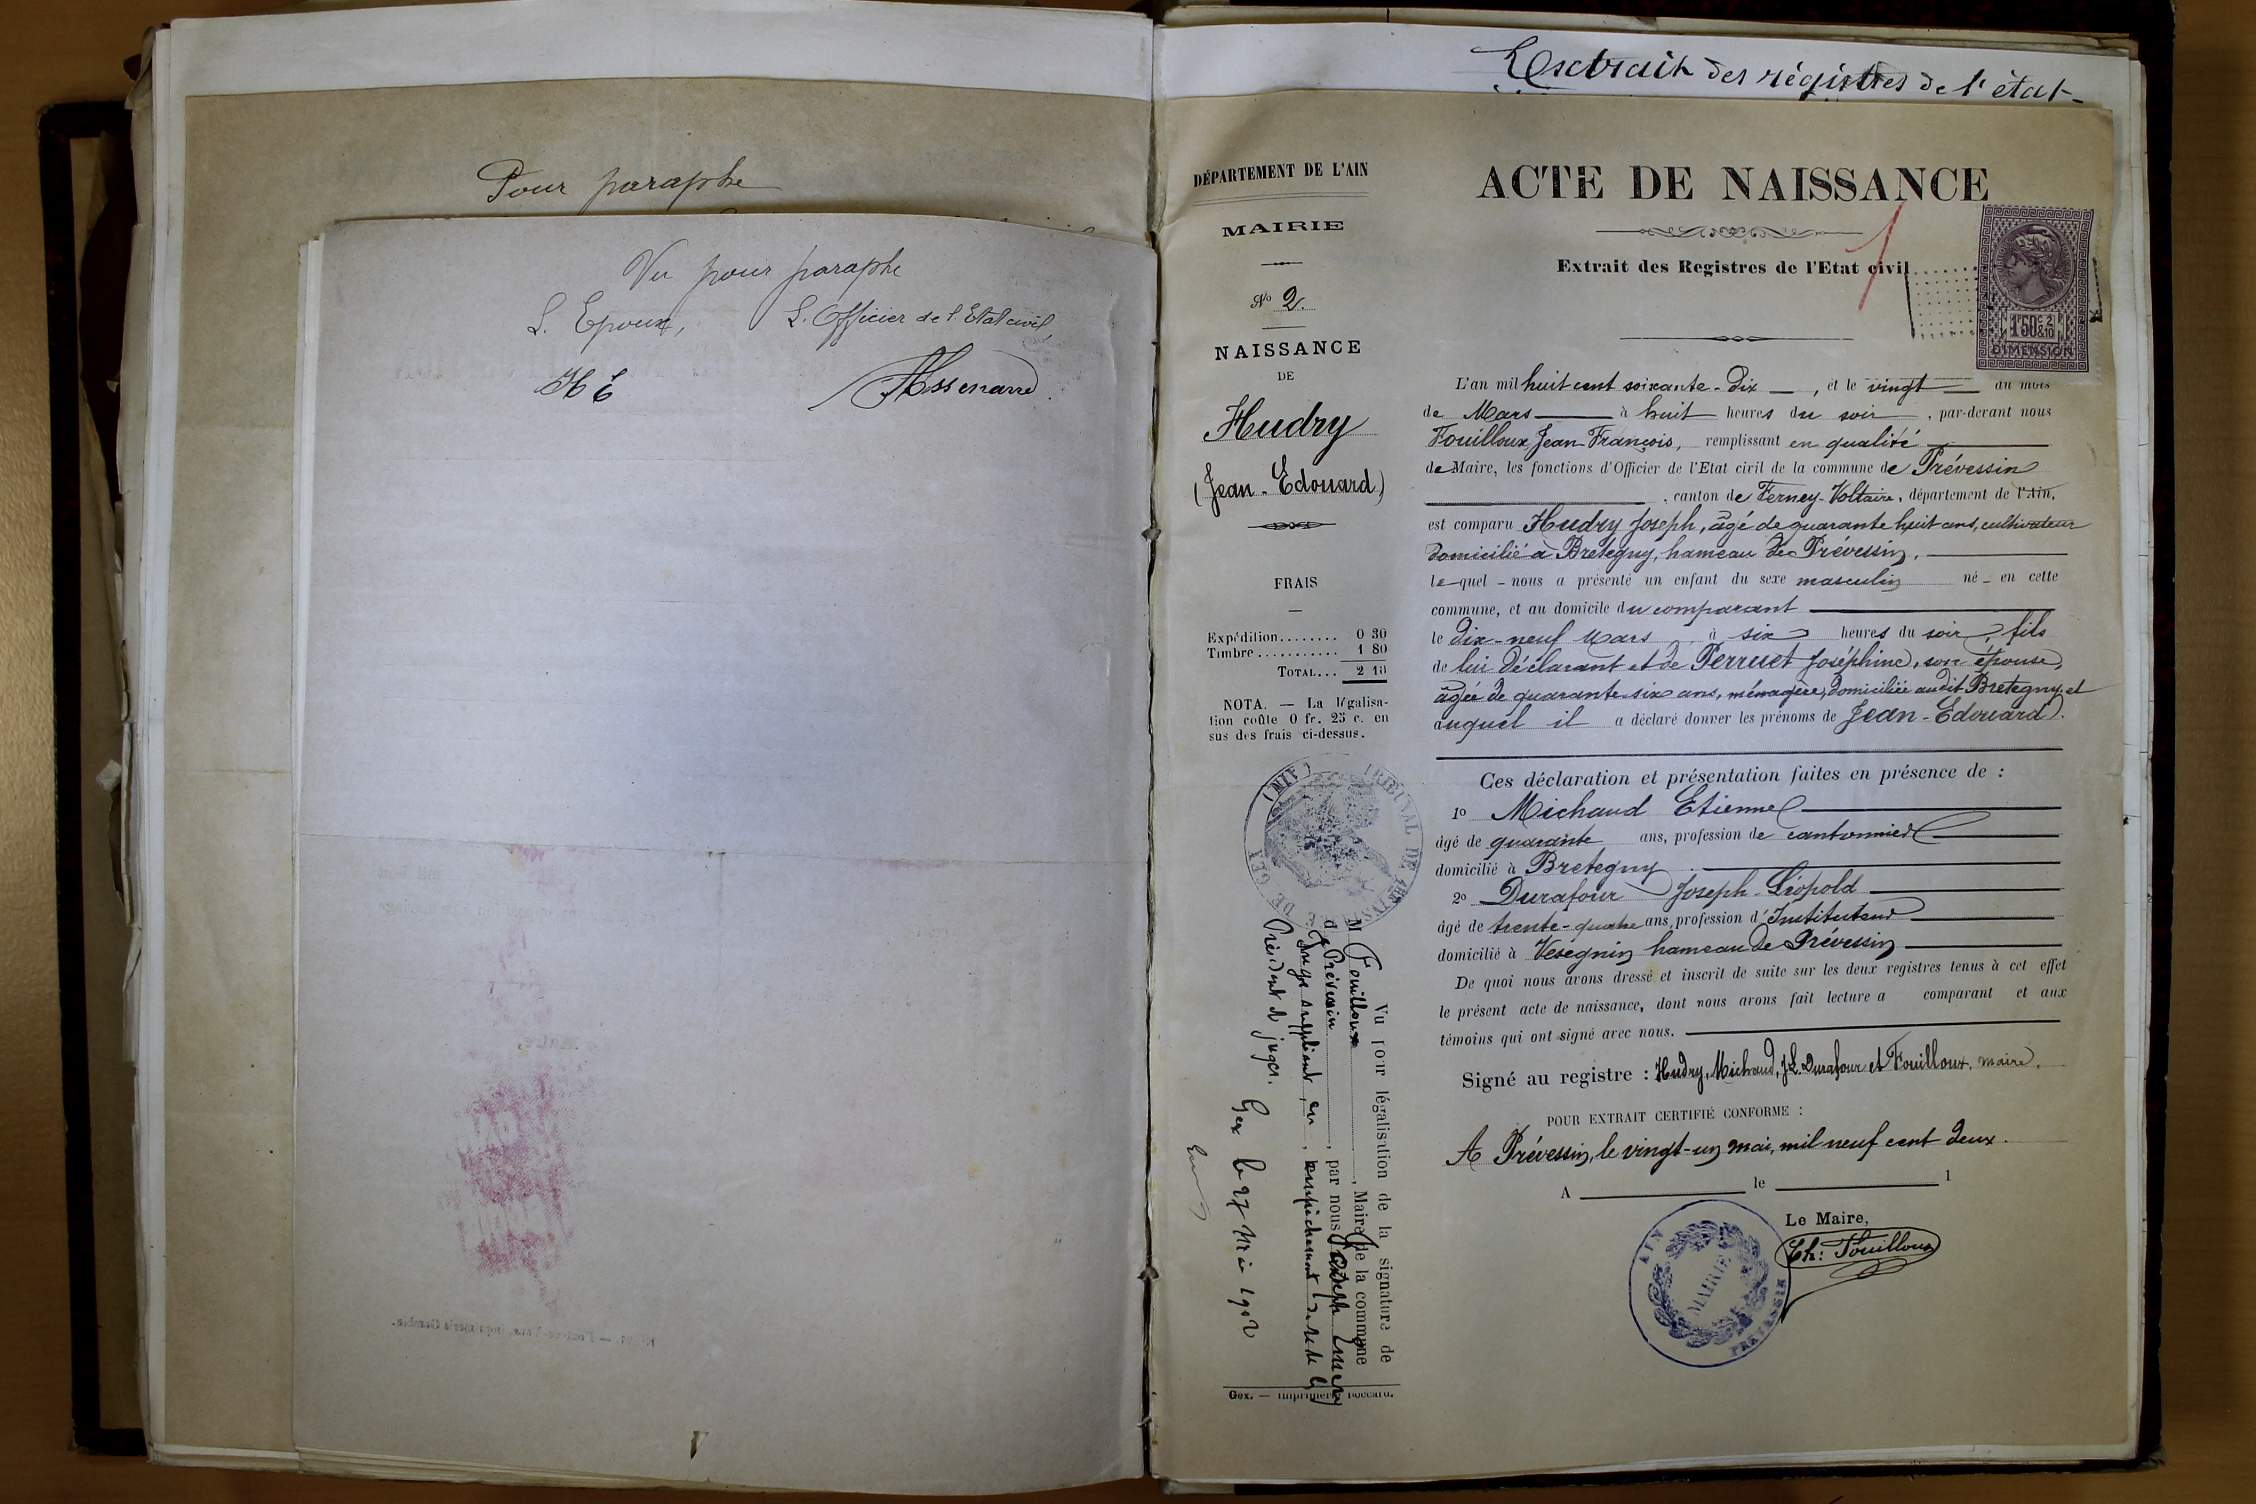 Pour paraphe
Vu pour paraphe
L. Epoux, L. Officier de l'Etat civil,
H E
Extrait des régistres de l'état-
DÉPARTEMENT DE L'AIN
MAIRIE
No 2.
NAISSANCE
DE
Hudry
(Jean-Edouard)
FRAIS
Expédition........ 0 30
Timbre........... 1 80
TOTAL... 2 10
NOTA. — La légalisa-
tion coûte 0 fr. 25 c. en
sus des frais ci-dessus.
TRIBUNAL DE 1RE INSTANCE DE GEX (AIN)
Vu pour légalisation de la signature de
M Fouilloux, Maire de la commune
d Prévessin, par nous Joseph
Juge suppléant, en, empêchement de
Président & juges. Gex le 27 Mai 1902
Gex. — Imprimerie Boccard.
ACTE DE NAISSANCE
1
Extrait des Registres de l'Etat civil
1F50 2/10
DIMENSION
L'an mil huit cent soixante-dix, et le vingt du mois
de Mars à huit heures du soir, par-devant nous
Fouilloux Jean François, remplissant en qualité
de Maire, les fonctions d'Officier de l'Etat civil de la commune de Prévessin
, canton de Ferney-Voltaire, département de l'Ain,
est comparu Hudry Joseph, âgé de quarante huit ans, cultivateur
domicilié à Bretegny, hameau de Prévessin,
le-quel - nous a présenté un enfant du sexe masculin né - en cette
commune, et au domicile du comparant
le dix-neuf Mars à six heures du soir, fils
de lui déclarant et de Perruet Joséphine, son épouse,
âgée de quarante-six ans, ménagère, domiciliée audit Bretegny, et
auquel il a déclaré donner les prénoms de Jean-Edouard.
Ces déclaration et présentation faites en présence de :
1o Michaud Etienne
âgé de quarante ans, profession de cantonnier
domicilié à Bretegny
2o Durafour Joseph-Léopold
âgé de trente-quatre ans, profession d'Instituteur
domicilié à Vésegnin hameau de Prévessin
De quoi nous avons dressé et inscrit de suite sur les deux registres tenus à cet effet
le présent acte de naissance, dont nous avons fait lecture a comparant et aux
témoins qui ont signé avec nous.
Signé au registre : Hudry, Michaud, J.L. Durafour et Fouilloux, maire.
POUR EXTRAIT CERTIFIÉ CONFORME :
A Prévessin, le vingt-un mai, mil neuf cent deux.
A le 1
Le Maire,
Ch: Fouilloux
AIN
MAIRIE DE
PREVESSIN